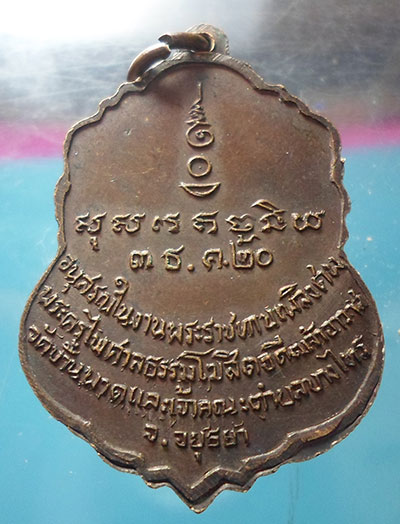 ๓ ธ.ค.๒๐
อนุสรณ์ในงานพระราชทานเพลิงศพ
พระครูไพศาลธรรมโฆสิตอดีตเจ้าอาวาส
วัดบ้านพาดและเจ้าคณะตำบลบางไทร
จ.อยุธยา